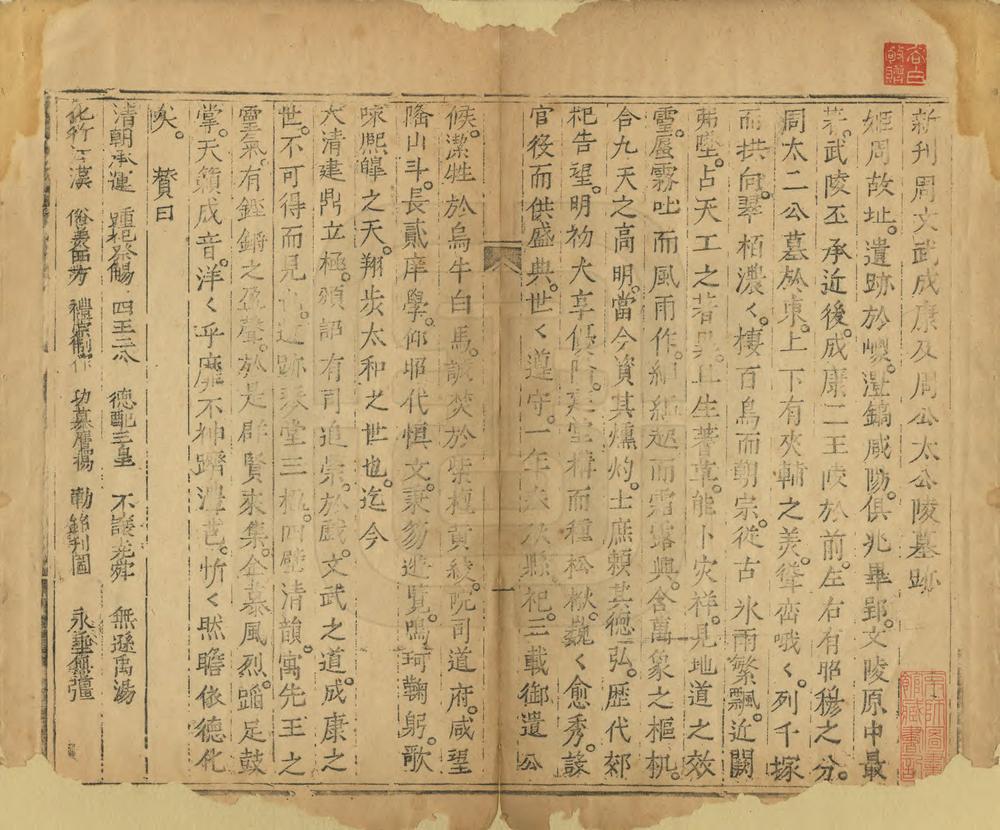 新刊周文武成康及周公太公陵墓跡
姬周故址。遺跡於豳。灃鎬咸陽。俱兆畢郢。文陵原中最
著。武陵丕承近後。成康二王陵於前。左右有昭穆之分。
周太二公墓於東。上下有夾輔之美。聳峦峨々。列千塚
而拱向。翠柏濃々。棲百鳥而朝宗。從古氷雨繁飄。近闕
弗墜。占天工之著異。且生蓍草。能卜灾祥。見地道之效
靈。蜃霧吐而風雨作。絪縕起而霜露興。含萬象之樞机。
合九天之高明。當今資其燻灼。士庶賴其德弘。歷代郊
祀告望。明礿大享優隆。建堂搆而種松楸。巍々愈秀。諒
官役而供盛典。世々遵守。一年春秋縣祀。三載御遣公
侯。潔牲於烏牛白馬。誠焚於柴檀黃綾。院司道府。咸望
隆山斗。長貳庠學。仰昭代慎文。秉笏遊覽。鳴珂鞠躬。歌
咏熈皥之天。翔步太和之世也。迄今
大清建鼎立極。頒詔有司追崇。於戲。文武之道。成康之
世。不可得而見也。近跡琴堂三極。四壁清韻。寓先王之
靈氣。有鏗鏘之盈聲。於是群賢來集。企慕風烈。蹈足鼓
掌。天籟成音。洋々乎靡不神躋灃芑。忻々然瞻依德化
矣。 贊曰
清朝承運 踵祀祭觴 四王二公 德配三皇 不讓堯舜 無遜禹湯
化行江漢 俗美苗芳 禮崇制作 功慕鷹揚 勒銘刊圖 永垂無疆
一